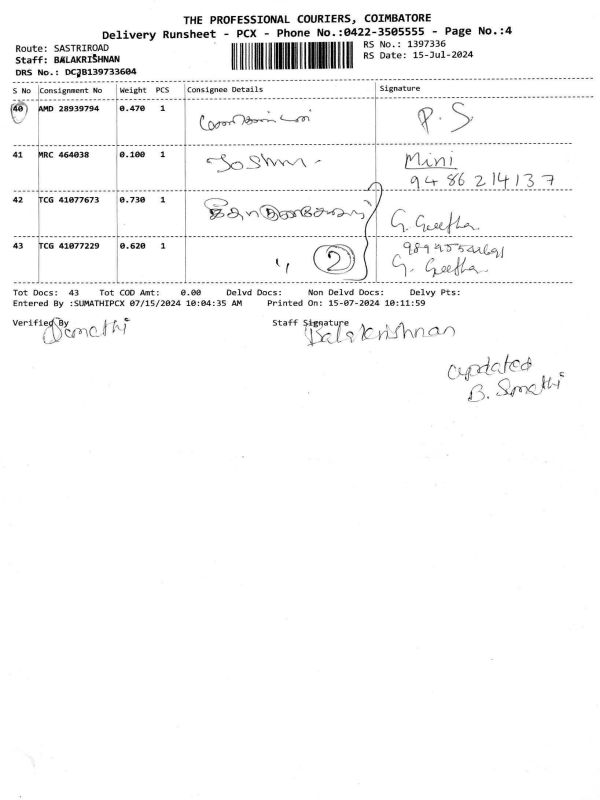 THE PROFESSIONAL COURIERS, COIMBATORE
Delivery Runsheet - PCX - Phone No.:0422-3505555 - Page No.:4
Route: SASTRIROAD
RS No.: 1397336
Staff: BALAKRISHNAN
RS Date: 15-Jul-2024
DRS No.: DCJB139733604
S No Consignment No Weight PCS Consignee Details Signature
40 AMD 28939794 0.470 1 P. S.
41 MRC 464038 0.100 1 Mini
9486214137
42 TCG 41077673 0.730 1 G. Geetha
43 TCG 41077229 0.620 1 " 2 G. Geetha
Tot Docs: 43 Tot COD Amt: 0.00 Delvd Docs: Non Delvd Docs: Delvy Pts:
Entered By :SUMATHIPCX 07/15/2024 10:04:35 AM Printed On: 15-07-2024 10:11:59
Verified By Staff Signature
Sumathi Balakrishnan
updated
B. Sumathi